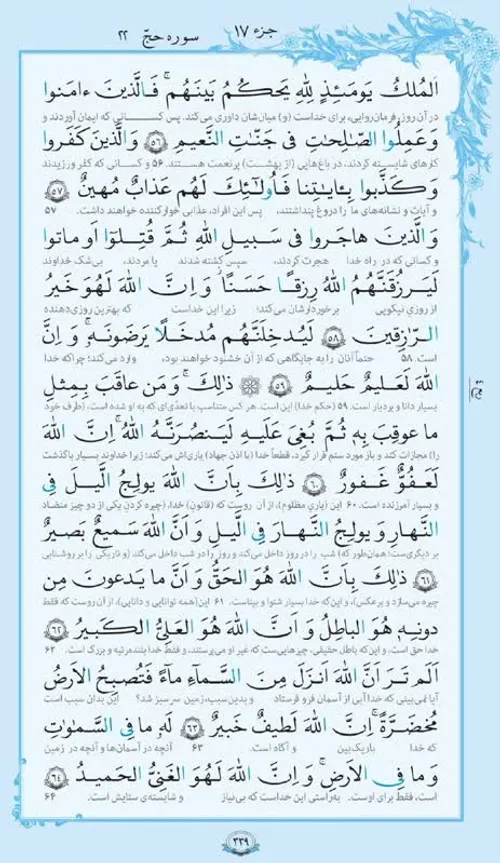 جزء ۱۷
سوره حجّ ۲۲
اَلمُلكُ يَومَئِذٍ لِلّٰهِ يَحكُمُ بَينَهُم ۚ فَالَّذينَ ءامَنوا
در آن روز، فرمان‌روایی، برای خداست (و) میان‌شان داوری می‌کند. پس کسانی که ایمان آوردند و
وَ عَمِلُوا الصّالِحاتِ فى جَنّاتِ النَّعيمِ ﴿۵۶﴾ وَالَّذينَ كَفَروا
کارهای شایسته کردند، در باغ‌هایی (از بهشت) پرنعمت هستند. ۵۶ و کسانی که کفر ورزیدند
وَ كَذَّبوا بِـٔاياتِنا فَاُولٰئِكَ لَهُم عَذابٌ مُهينٌ ﴿۵۷﴾
و آیات و نشانه‌های ما را دروغ پنداشتند، پس این افراد، عذابی خوارکننده خواهند داشت. ۵۷
وَالَّذينَ هاجَروا فى سَبيلِ اللهِ ثُمَّ قُتِلوا اَو ماتوا
و کسانی که در راه خدا هجرت کردند، سپس کشته شدند یا مردند، بی‌شک خداوند
لَيَرزُقَنَّهُمُ اللهُ رِزقًا حَسَنًا ۚ وَ اِنَّ اللهَ لَهُوَ خَيرُ
از روزیِ نیکویی برخوردارشان می‌کند؛ زیرا این خداست که بهترین روزی‌دهنده
الرّازِقينَ ﴿۵۸﴾ لَيُدخِلَنَّهُم مُدخَلًا يَرضَونَهُ ۚ وَ اِنَّ
است. ۵۸ حتماً آنان را به جایگاهی که از آن خشنود خواهند بود، وارد می‌کند؛ چراکه خدا
اللهَ لَعَليمٌ حَليمٌ ﴿۵۹﴾ ذٰلِكَ ۚ وَ مَن عاقَبَ بِمِثلِ
بسیار دانا و بردبار است. ۵۹ (حکم خدا) این است. هر کس متناسب با تعدّی‌ای که به او شده است، (طرف خود
ما عوقِبَ بِهِ ثُمَّ بُغِىَ عَلَيهِ لَيَنصُرَنَّهُ اللهُ ۚ اِنَّ اللهَ
را) مجازات کند و باز مورد ستم قرار گیرد، قطعاً خدا (با اذن جهاد) یاری‌اش می‌کند؛ زیرا خداوند بسیار باگذشت
لَعَفُوٌّ غَفورٌ ﴿۶۰﴾ ذٰلِكَ بِاَنَّ اللهَ يولِجُ الَّيلَ فِى
و بسیار آمرزنده است. ۶۰ این (یاریِ مظلوم)، از آن روست که (قانونِ) خدا، (چیره کردن یکی از دو چیز متضاد
النَّهارِ وَ يولِجُ النَّهارَ فِى الَّيلِ وَ اَنَّ اللهَ سَميعٌ بَصيرٌ
بر دیگری‌ست؛ همان‌طور که) شب را در روز داخل می‌کند و روز را در شب داخل می‌کند (و تاریکی را بر روشنایی
﴿۶۱﴾ ذٰلِكَ بِاَنَّ اللهَ هُوَ الحَقُّ وَ اَنَّ ما يَدعونَ مِن
چیره می‌سازد و برعکس)، و این‌که خدا بسیار شنوا و بیناست. ۶۱ این (همه توانایی و دانایی)، از آن روست که فقط
دونِهِ هُوَ الباطِلُ وَ اَنَّ اللهَ هُوَ العَلِىُّ الكَبيرُ ﴿۶۲﴾
خدا حق است، و این‌که باطل حقیقی، چیزهایی‌ست که غیر او می‌پرستند، و فقط خدا بلندمرتبه و بزرگ است. ۶۲
اَلَم تَرَ اَنَّ اللهَ اَنزَلَ مِنَ السَّماءِ ماءً فَتُصبِحُ الاَرضُ
آیا نمی‌بینی که خدا آبی از آسمان فرو فرستاد و بدین سبب، زمین سرسبز شد؟ این بدان سبب است
مُخضَرَّةً ۚ اِنَّ اللهَ لَطيفٌ خَبيرٌ ﴿۶۳﴾ لَهُ ما فِى السَّماواتِ
که خدا باریک‌بین و آگاه است. ۶۳ آنچه در آسمان‌ها و آنچه در زمین
وَ ما فِى الاَرضِ ۚ وَ اِنَّ اللهَ لَهُوَ الغَنِىُّ الحَميدُ ﴿۶۴﴾
است، فقط برای اوست. به‌راستی این خداست که بی‌نیاز و شایسته‌ی ستایش است. ۶۴
۳۳۹